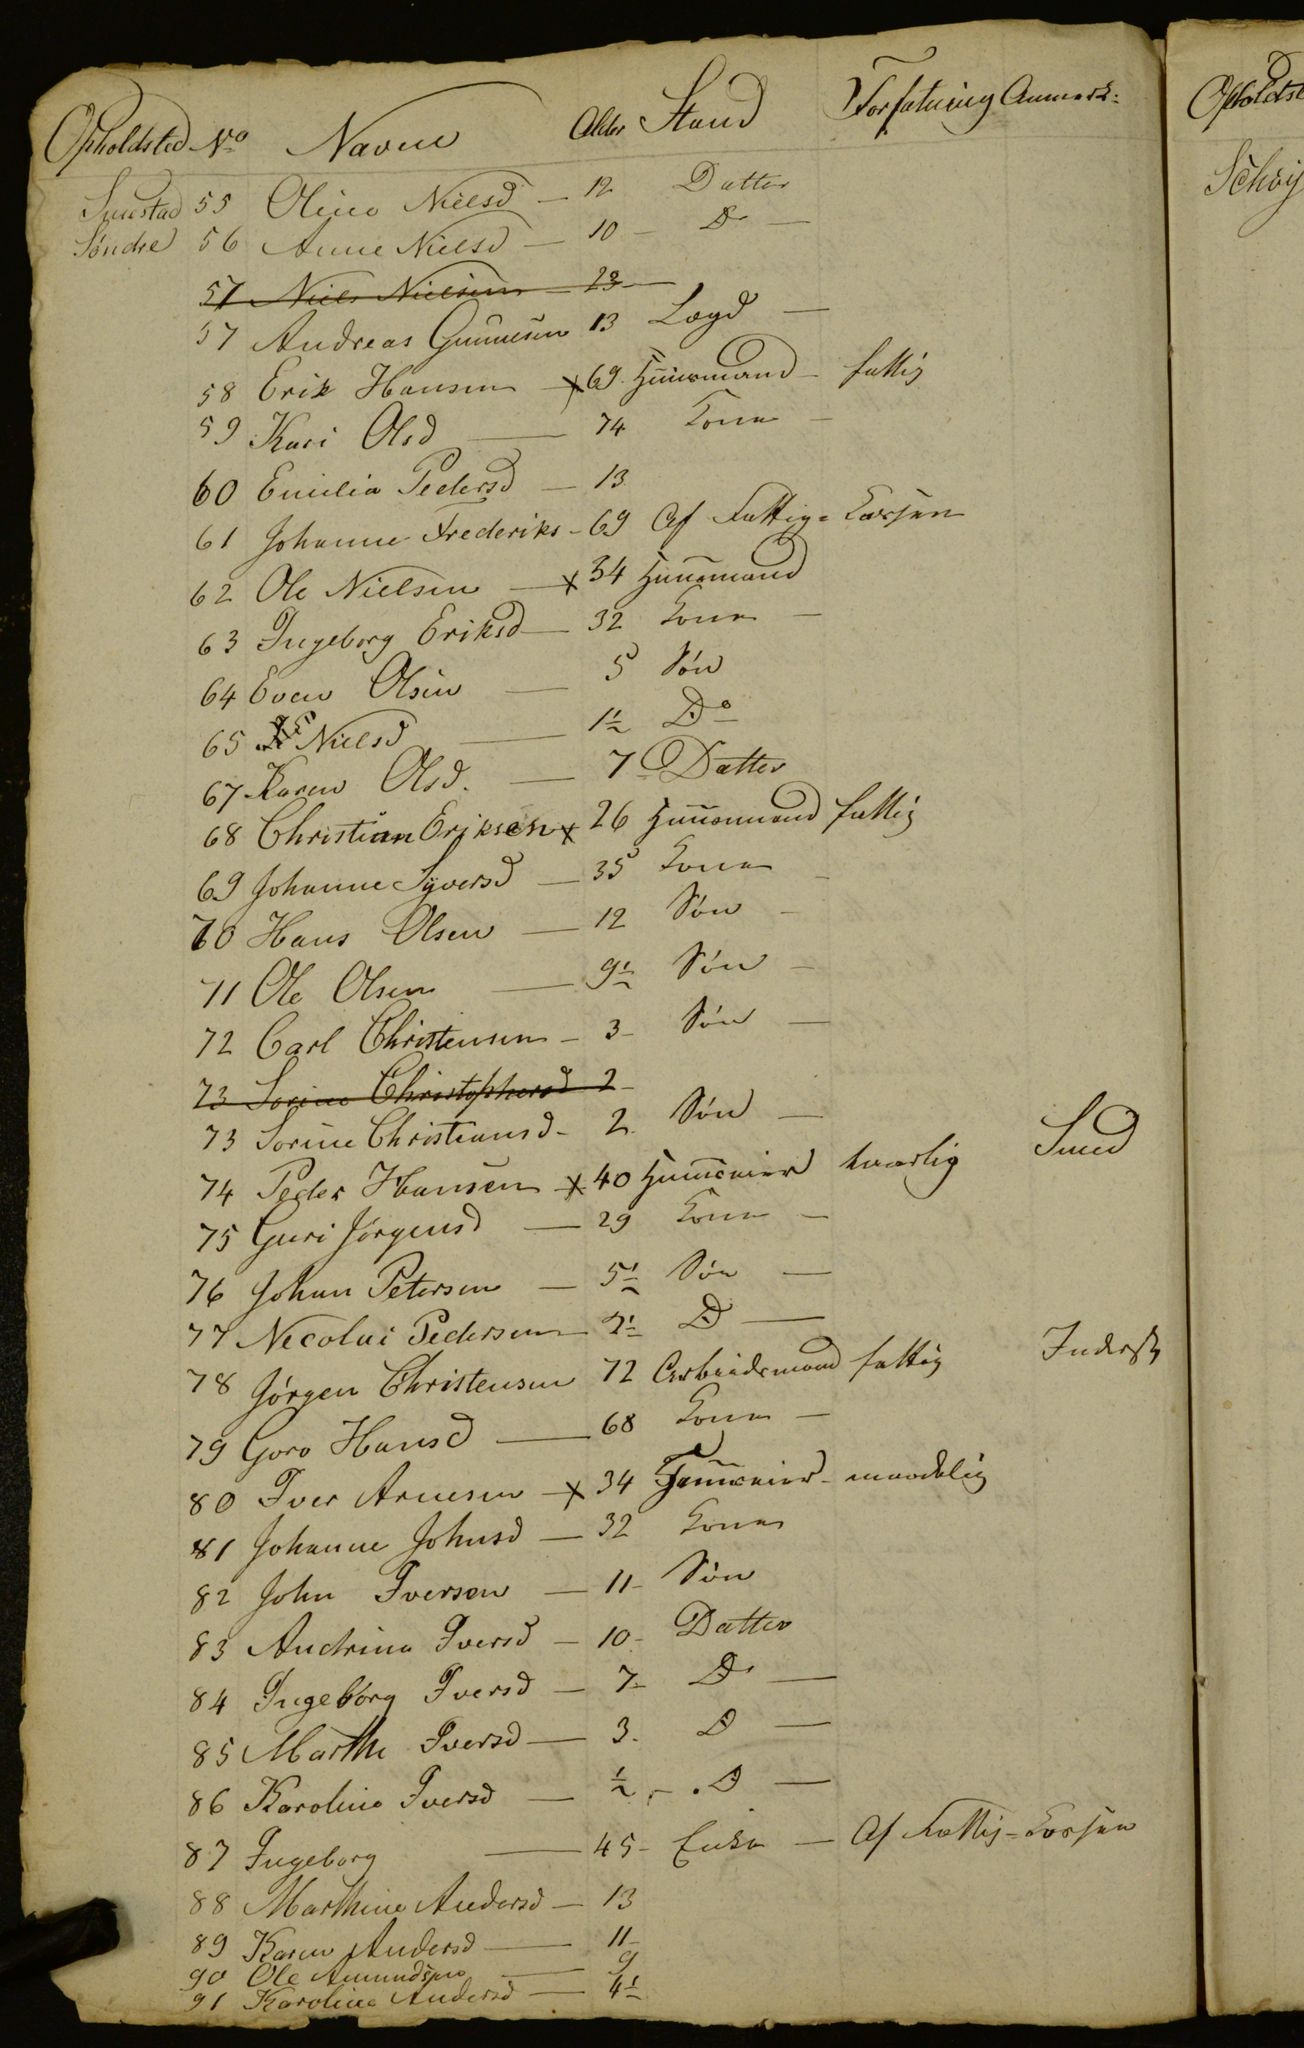 Opholdsted No Navne Alder Stand Forfatning Anmerk:
Smestad 55 Oline Nielsd — 12 Datter
Søndre 56 Anne Nielsd — 10 — Do —
57 Niels Nielsen — 23 —
57 Andreas Gunnesen 13 Lægd —
58 Erik Hansen — x 69. Huusmand — fattig
59 Kari Olsd — 74 Kone —
60 Emilia Pedersd — 13
61 Johanne Frederiks - 69 Af Fattig=Kassen
62 Ole Nielsen — x 34 Huusmand
63 Ingeborg Eriksd — 32 Kone —
64 Even Olsen — 5 Søn
65 Nielsd — 1½ Do
67 Karen Olsd. — 7 - Datter
68 Christian Eriksen x 26 Huusmand fattig
69 Johanne Syversd — 35 Kone —
70 Hans Olsen — 12 Søn —
71 Ole Olsen — 9½ Søn —
72 Carl Christensen - 3 - Søn —
73 Sorine Christophersd 2 -
73 Sorine Christiansd - 2. Søn —
74 Peder Hansen - x 40 Huuseier kaarlig Smed
75 Guri Jørgensd — 29 Kone —
76 Johan Petersen — 5½ Søn —
77 Necolai Pedersen — 2½ D —
78 Jørgen Christensen 72 Arbeidsmand fattig Inderst
79 Goro Hansd — 68 Kone —
80 Iver Arnesen — x 34 Huuseier - maadelig
81 Johanne Johnsd — 32 Kone
82 John Iversen — 11 - Søn
83 Andrine Iversd — 10 - Datter
84 Ingeborg Iversd — 7 - Do —
85 Marthe Iversd — 3. D —
86 Karoline Iversd — ½ - . D —
87 Ingeborg — 45 - Enke — Af Fattig=Kassen
88 Marthine Andersd — 13
89 Karen Andersd — 11 -
90 Ole Amundsen — 9
91 Karoline Andersd — 4½
Opholdst
Schøy